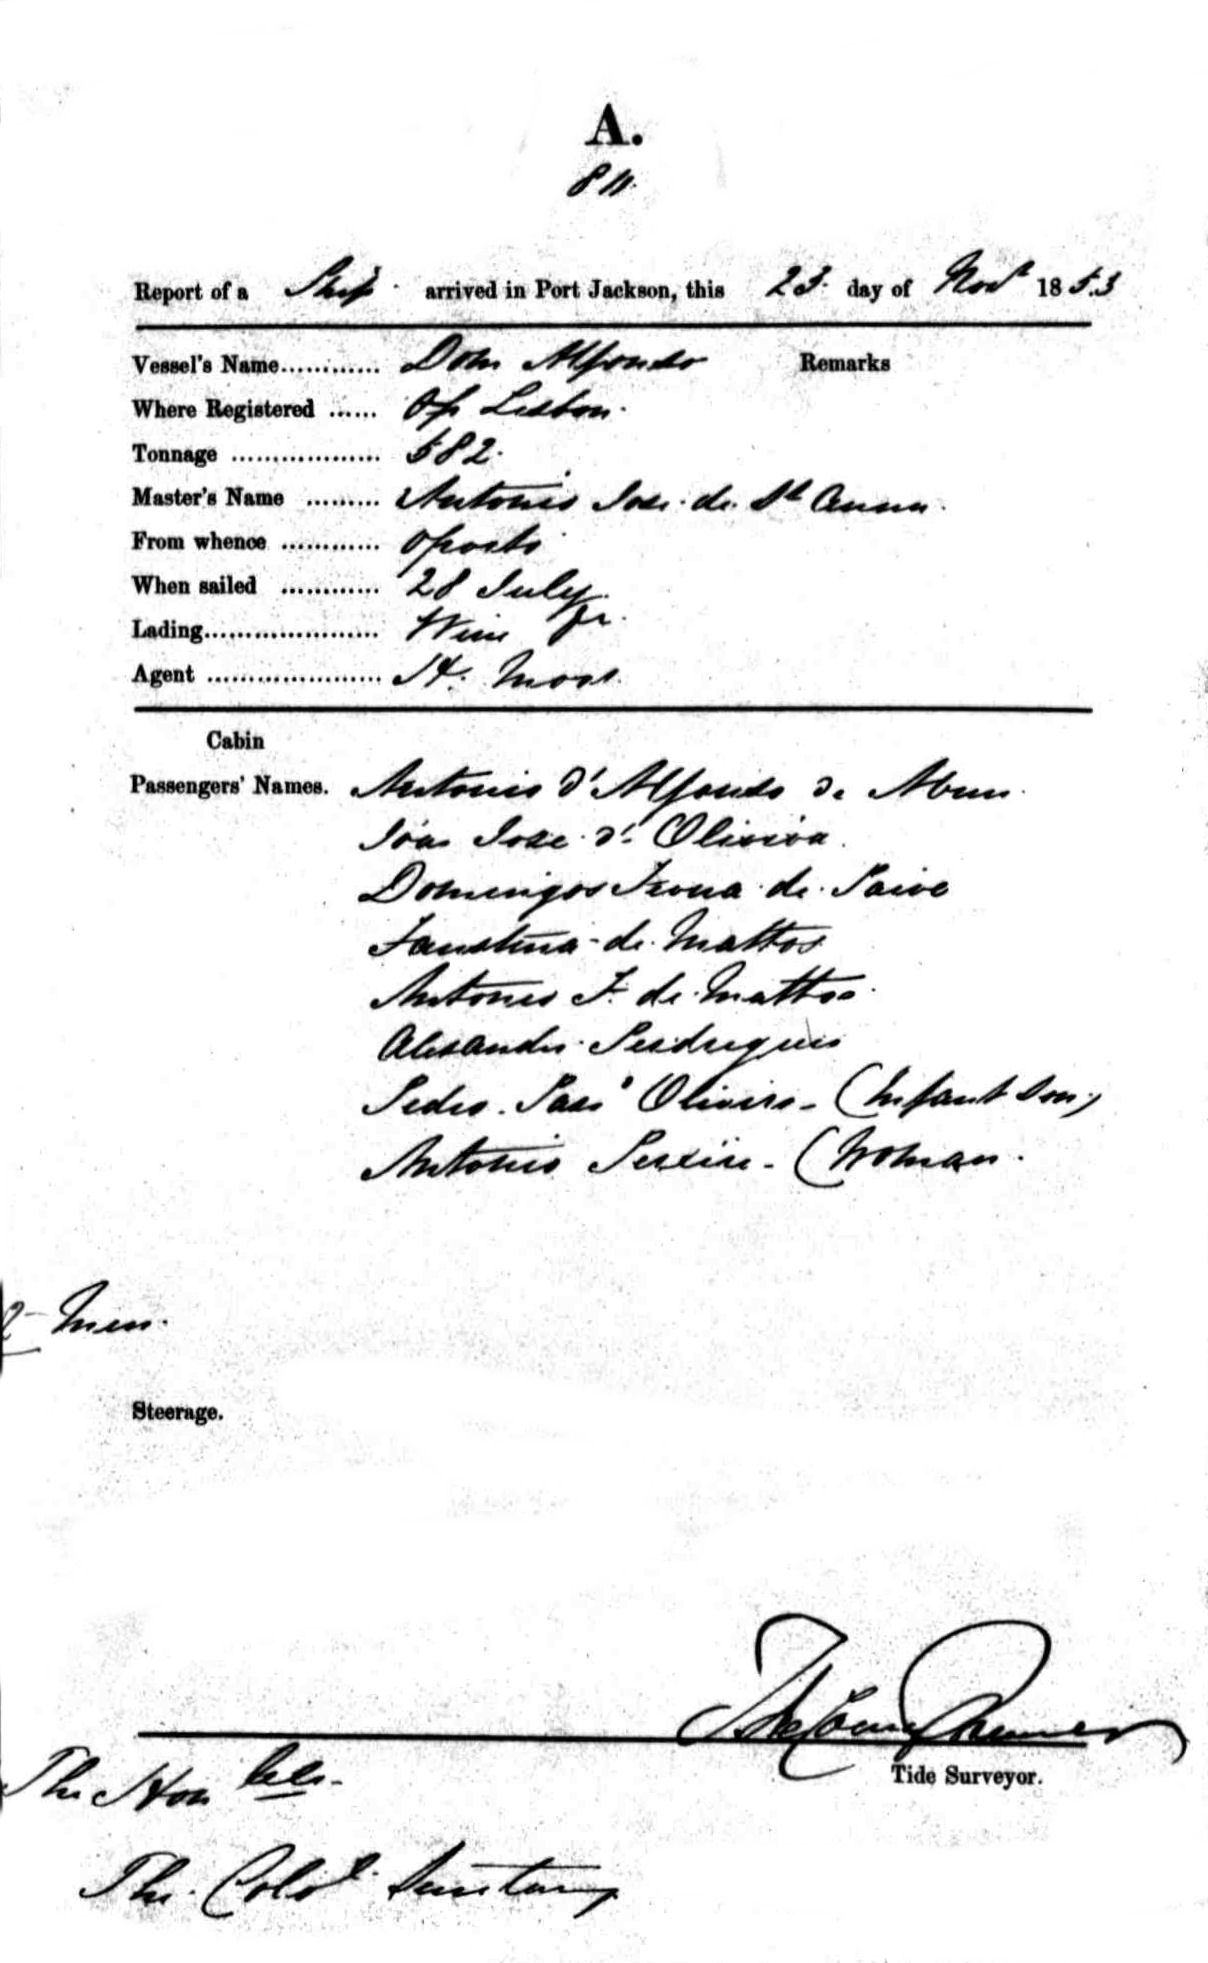 A.
811.
Report of a Ship arrived in Port Jackson, this 23 day of Novr 1853
Vessel's Name............ Dom Alfonso Remarks
Where Registered ...... Of Lisbon.
Tonnage .................. 582.
Master's Name ......... Antonio Jose de St Anna.
From whence ............ Oporto
When sailed ............ 28 July
Lading..................... Wine &c.
Agent ..................... H. Moss.
Cabin
Passengers' Names. Antonio d' Alfonso de Abreu
Joao Jose d' Oliviera.
Domingos de Paive
Faustina de Mattos
Antonio F. de Mattos.
Alexandre
Pedro Oliviero - (Infant Son)
Antonio - (Woman.
Men.
Steerage.
Tide Surveyor.
The Honble
The Colol Secretary